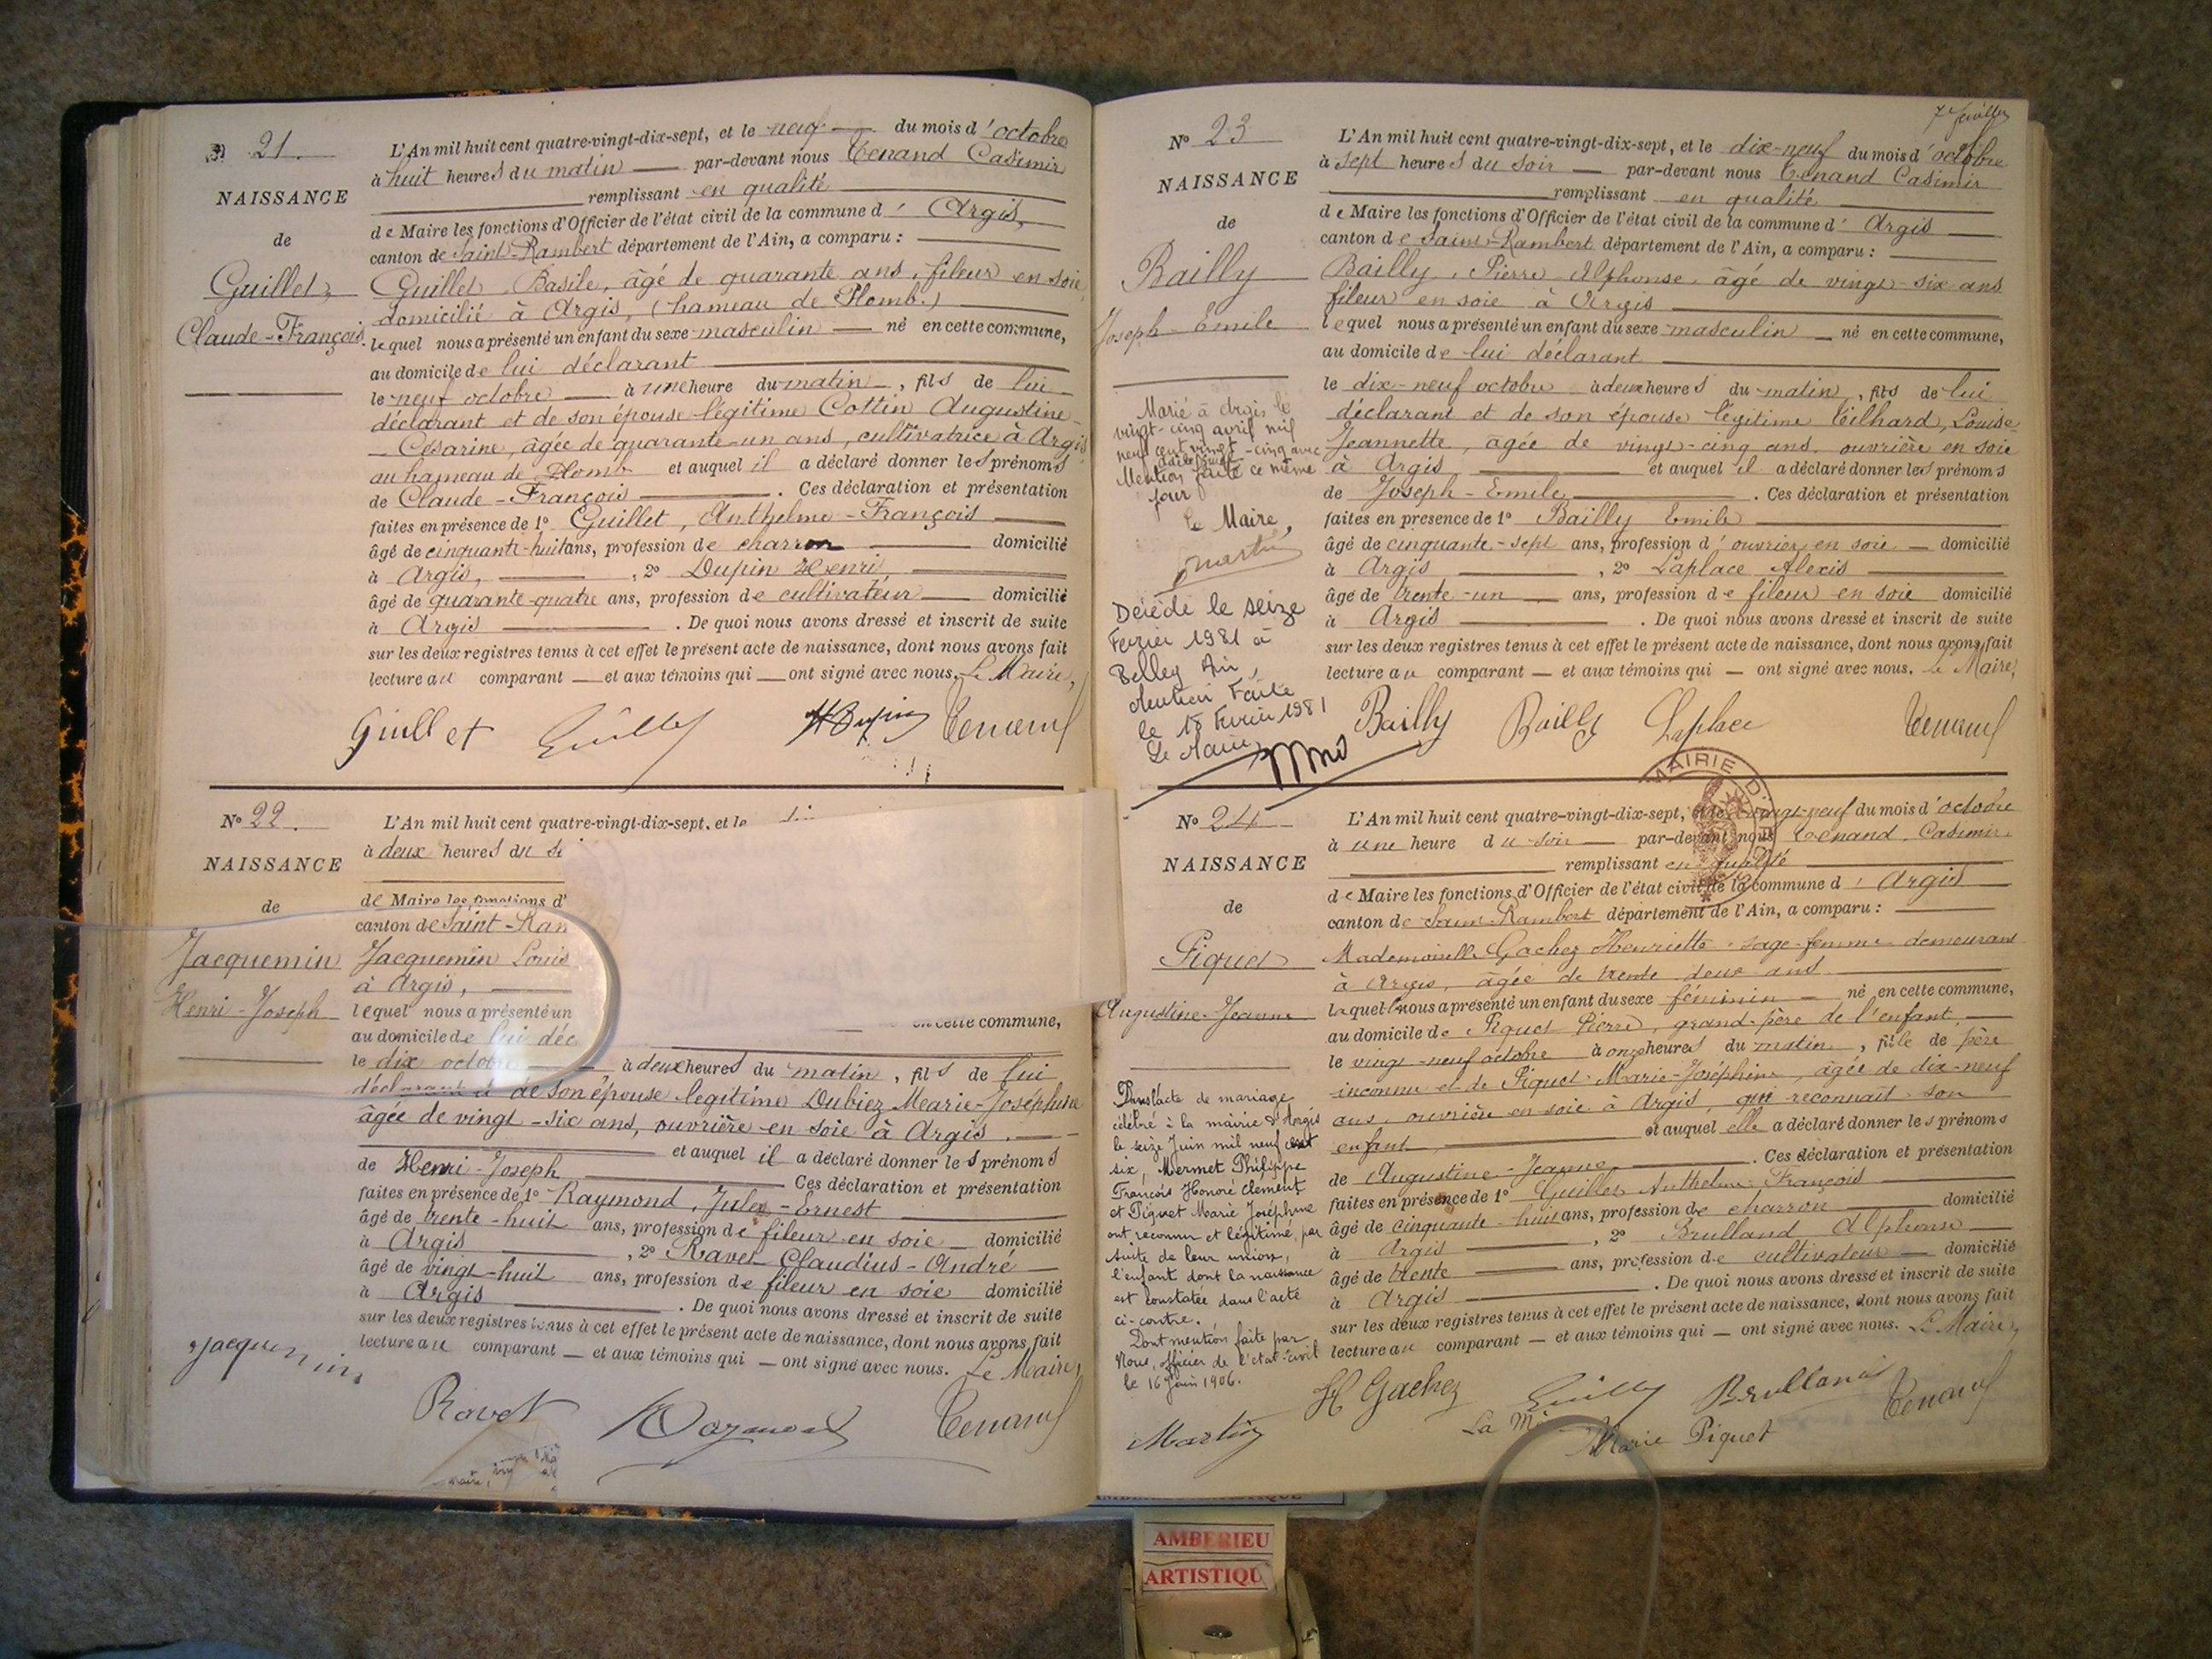 N° 21.
NAISSANCE
de
Guillet
Claude-François.
L'An mil huit cent quatre-vingt-dix-sept, et le neuf du mois d'octobre
à huit heures du matin par-devant nous Tenand Casimir
remplissant en qualité
de Maire les fonctions d'Officier de l'état civil de la commune d'Argis,
canton de Saint-Rambert département de l'Ain, a comparu :
Guillet, Basile, âgé de quarante ans, fileur en soie,
domicilié à Argis, (hameau de Plomb.)
lequel nous a présenté un enfant du sexe masculin né en cette commune,
au domicile de lui déclarant
le neuf octobre à une heure du matin, fils de lui
déclarant et de son épouse légitime Cottin Augustine
Césarine, âgée de quarante-un ans, cultivatrice à Argis
au hameau de Plomb et auquel il a déclaré donner les prénoms
de Claude-François. Ces déclaration et présentation
faites en présence de 1° Guillet, Anthelme-François
âgé de cinquante-huit ans, profession de charron domicilié
à Argis, , 2° Dupin Henri
âgé de quarante-quatre ans, profession de cultivateur domicilié
à Argis . De quoi nous avons dressé et inscrit de suite
sur les deux registres tenus à cet effet le présent acte de naissance, dont nous avons fait
lecture au comparant et aux témoins qui ont signé avec nous. Le Maire,
Guillet Guillet H Dupin Tenand
N° 22.
NAISSANCE
de
Jacquemin
Henri-Joseph
L'An mil huit cent quatre-vingt-dix-sept, et le
à deux heures du
de Maire les fonctions d'
canton de Saint-Ram
Jacquemin Louis
à Argis,
lequel nous a présenté un
en cette commune,
au domicile de lui déc
le dix octobre à deux heures du matin, fils de lui
déclarant et de son épouse légitime Dubiez Marie-Joséphine
âgée de vingt-six ans, ouvrière en soie à Argis.
et auquel il a déclaré donner les prénoms
de Henri-Joseph Ces déclaration et présentation
faites en présence de 1° Raymond, Jules-Ernest
âgé de trente-huit ans, profession de fileur en soie domicilié
à Argis , 2° Ravet Claudius-André
âgé de vingt-huit ans, profession de fileur en soie domicilié
à Argis . De quoi nous avons dressé et inscrit de suite
sur les deux registres tenus à cet effet le présent acte de naissance, dont nous avons fait
lecture au comparant et aux témoins qui ont signé avec nous. Le Maire,
Jacquemin
Ravet Raymond Tenand
7e feuillet
N° 23
NAISSANCE
de
Bailly
Joseph-Emile
Marié à Argis le
vingt-cinq avril mil
neuf cent vingt-cinq avec
Mention faite ce même
jour
Le Maire,
Martin
Décédé le seize
Fevrier 1981 à
Belley Ain,
Mention Faite
le 18 Fevrier 1981
Le Maire
L'An mil huit cent quatre-vingt-dix-sept, et le dix-neuf du mois d'octobre
à sept heures du soir par-devant nous Tenand Casimir
remplissant en qualité
de Maire les fonctions d'Officier de l'état civil de la commune d'Argis
canton de Saint-Rambert département de l'Ain, a comparu :
Bailly, Pierre-Alphonse, âgé de vingt-six ans
fileur en soie à Argis
lequel nous a présenté un enfant du sexe masculin né en cette commune,
au domicile de lui déclarant
le dix-neuf octobre à deux heures du matin, fils de lui
déclarant et de son épouse légitime Tilhard, Louise
Jeannette, âgée de vingt-cinq ans, ouvrière en soie
à Argis et auquel il a déclaré donner les prénoms
de Joseph-Emile . Ces déclaration et présentation
faites en présence de 1° Bailly Emile
âgé de cinquante-sept ans, profession d'ouvrier en soie domicilié
à Argis , 2° Laplace Alexis
âgé de trente-un ans, profession de fileur en soie domicilié
à Argis . De quoi nous avons dressé et inscrit de suite
sur les deux registres tenus à cet effet le présent acte de naissance, dont nous avons fait
lecture au comparant et aux témoins qui ont signé avec nous. Le Maire,
Bailly Bailly Laplace Tenand
MAIRIE D'AR
N° 24
NAISSANCE
de
Piquet
Augustine-Jeanne
Dans l'acte de mariage
célébré à la mairie d'Argis
le seize Juin mil neuf cent
six, Mermet Philippe
François Honoré Clément
et Piquet Marie Joséphine
ont reconnu et légitimé, par
suite de leur union,
l'enfant dont la naissance
est constatée dans l'acte
ci-contre.
Dont mention faite par
Nous, officier de l'état-civil
le 16 Juin 1906.
Martin
L'An mil huit cent quatre-vingt-dix-sept, et le vingt-neuf du mois d'octobre
à une heure du soir par-devant nous Tenand, Casimir
remplissant en qualité
de Maire les fonctions d'Officier de l'état civil de la commune d'Argis
canton de Saint-Rambert département de l'Ain, a comparu :
Mademoiselle Gachez Henriette, sage-femme demeurant
à Argis, âgée de trente deux ans
laquelle nous a présenté un enfant du sexe féminin né en cette commune,
au domicile de Piquet Pierre, grand-père de l'enfant,
le vingt-neuf octobre à onze heures du matin, fille de père
inconnu et de Piquet Marie-Joséphine, âgée de dix-neuf
ans, ouvrière en soie à Argis, qui reconnaît son
enfant et auquel elle a déclaré donner les prénoms
de Augustine-Jeanne . Ces déclaration et présentation
faites en présence de 1° Guillet Anthelme François
âgé de cinquante-huit ans, profession de charron domicilié
à Argis , 2° Brulland Alphonse
âgé de trente ans, profession de cultivateur domicilié
à Argis . De quoi nous avons dressé et inscrit de suite
sur les deux registres tenus à cet effet le présent acte de naissance, dont nous avons fait
lecture au comparant et aux témoins qui ont signé avec nous. Le Maire,
H Gachez Guillet Brulland Tenand
La M
Marie Piquet
AMBERIEU
ARTISTIQU